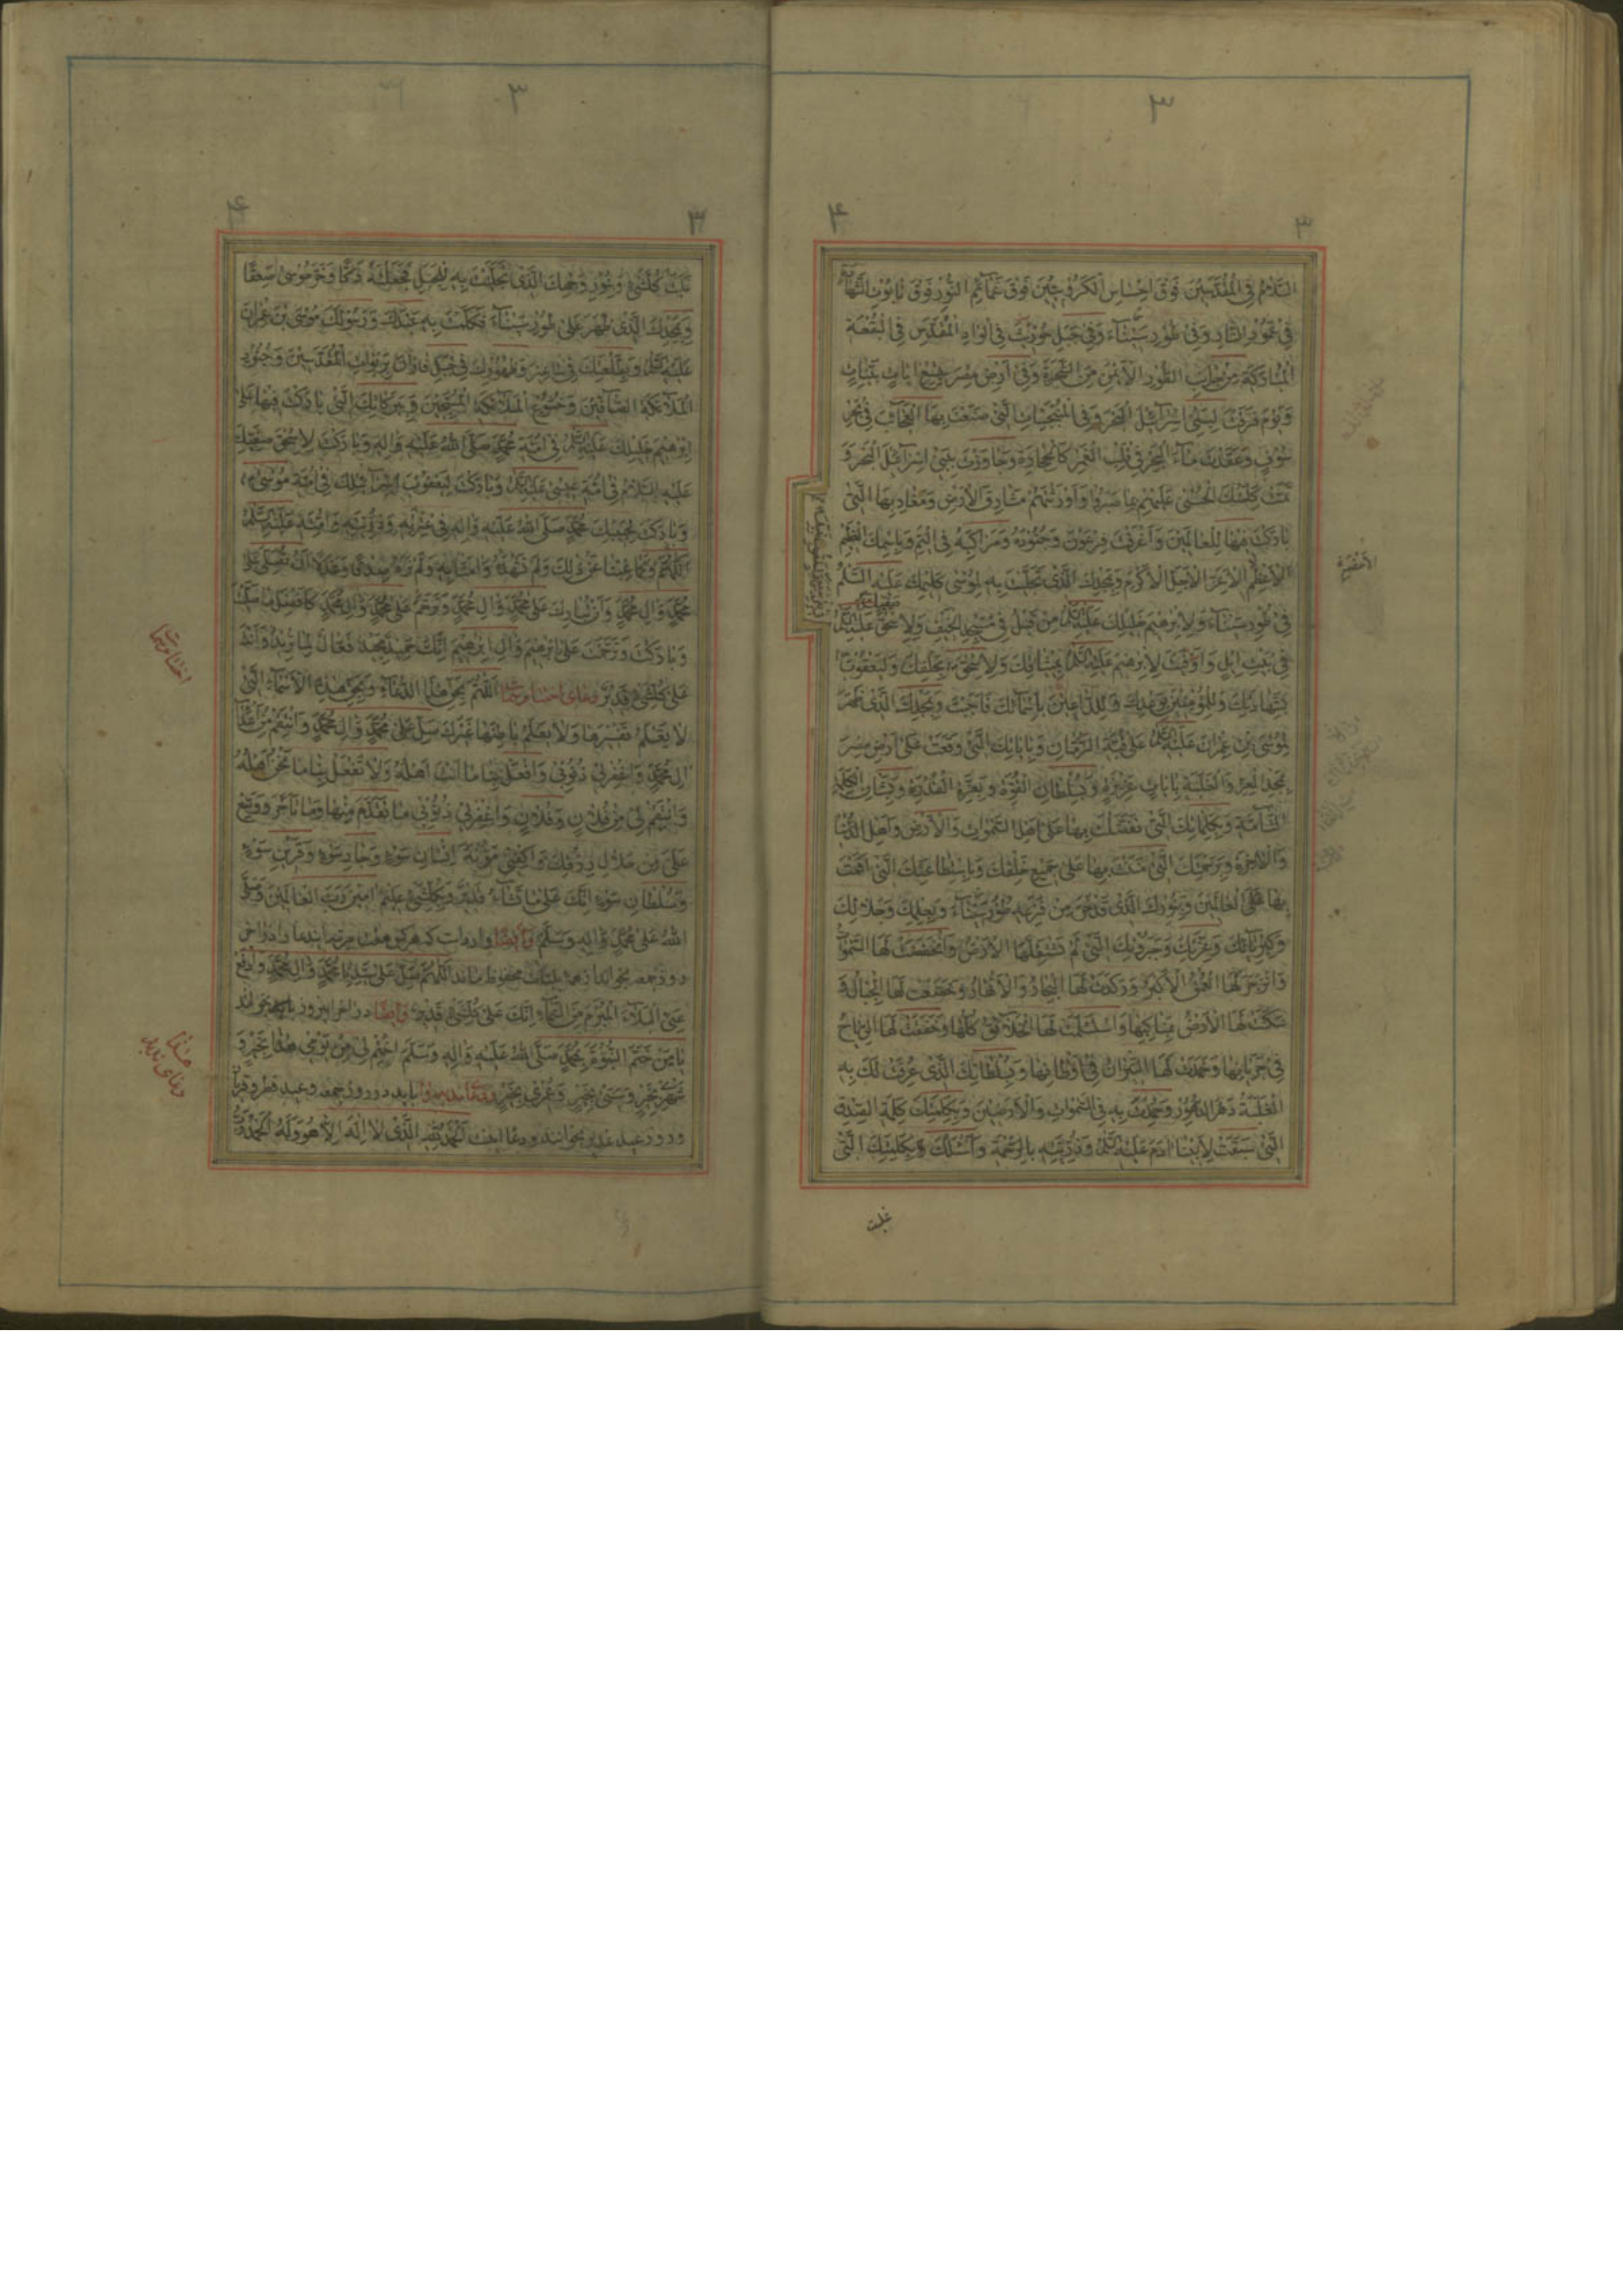 السَّلَامُ فِي الْمُقَدَّسِينَ فَوْقَ اِحْسَاسِ الْكَرُوبِيِّينَ فَوْقَ غَمَآئِمِ النُّورِ فَوْقَ تَابُوتِ الشَّهَادَةِ
فِي عَمُودِ النَّارِ وَفِي طُورِ سَيْنَآءَ وَفِي جَبَلِ حُورِيثَ فِي الْوَادِ الْمُقَدَّسِ فِي الْبُقْعَةِ
الْمُبَارَكَةِ مِنْ جَانِبِ الطُّورِ الْاَيْمَنِ مِنَ الشَّجَرَةِ وَفِي اَرْضِ مِصْرَ بِتِسْعِ ايَاتٍ بَيِّنَاتٍ
وَيَوْمَ فَرَقْتَ لِبَنِي اِسْرَآئِيلَ الْبَحْرَ وَفِي الْمُنْبَجِسَاتِ الَّتِي صَنَعْتَ بِهَا الْعَجَآئِبَ فِي بَحْرِ
سُوفٍ وَعَقَدْتَ مَآءَ الْبَحْرِ فِي قَلْبِ الْغَمْرِ كَالْحِجَارَةِ وَجَاوَزْتَ بِبَنِي اِسْرَآئِيلَ الْبَحْرَ وَ
تَمَّتْ كَلِمَتُكَ الْحُسْنَى عَلَيْهِمْ بِمَا صَبَرُوا وَاَوْرَثْتَهُمْ مَشَارِقَ الْاَرْضِ وَمَغَارِبَهَا الَّتِي
بَارَكْتَ فِيهَا لِلْعَالَمِينَ وَاَغْرَقْتَ فِرْعَوْنَ وَجُنُودَهُ وَمَرَاكِبَهُ فِي الْيَمِّ وَبِاسْمِكَ الْعَظِيمِ
الْاَعْظَمِ الْاَعَزِّ الْاَجَلِّ الْاَكْرَمِ وَبِمَجْدِكَ الَّذِي تَجَلَّيْتَ بِهِ لِمُوسَى كَلِيمِكَ عَلَيْهِ السَّلَمُ
فِي طُورِ سَيْنَآءَ وَلِاِبْرَهِيمَ خَلِيلِكَ عَلَيْهِ السَّلَمُ مِنْ قَبْلُ فِي مَسْجِدِ الْخَيْفِ وَلِاِسْحَقَ عَلَيْهِ السَّلَمُ
فِي بَيْتِ اِيلٍ وَاَوْفَيْتَ لِاِبْرَهِيمَ عَلَيْهِ السَّلَمُ بِمِيثَاقِكَ وَلِاِسْحَقَ بِحَلْفِكَ وَلِيَعْقُوبَ
بِشَهَادَتِكَ وَلِلْمُؤْمِنِينَ بِوَعْدِكَ وَلِلدَّاعِينَ بِاَسْمَآئِكَ فَاَجَبْتَ وَبِمَجْدِكَ الَّذِي ظَهَرَ
لِمُوسَى بْنِ عِمْرَانَ عَلَيْهِ السَّلَمُ عَلَى قُبَّةِ الرُّمَّانِ وَبِايَاتِكَ الَّتِي وَقَعَتْ عَلَى اَرْضِ مِصْرَ
بِمَجْدِ الْعِزَّةِ وَالْغَلَبَةِ بِايَاتٍ عَزِيزَةٍ وَبِسُلْطَانِ الْقُوَّةِ وَبِعِزَّةِ الْقُدْرَةِ وَبِشَانِ الْكَلِمَةِ
التَّآمَّةِ وَبِكَلِمَاتِكَ الَّتِي تَفَضَّلْتَ بِهَا عَلَى اَهْلِ السَّمَوَاتِ وَالْاَرْضِ وَاَهْلِ الدُّنْيَا
وَالْاخِرَةِ وَبِرَحْمَتِكَ الَّتِي مَنَنْتَ بِهَا عَلَى جَمِيعِ خَلْقِكَ وَبِاسْتِطَاعَتِكَ الَّتِي اَقَمْتَ
بِهَا عَلَى الْعَالَمِينَ وَبِنُورِكَ الَّذِي قَدْ خَرَّ مِنْ فَزَعِهِ طُورُ سَيْنَآءَ وَبِعِلْمِكَ وَجَلَالِكَ
وَكِبْرِيَآئِكَ وَعِزَّتِكَ وَجَبَرُوتِكَ الَّتِي لَمْ تَسْتَقِلَّهَا الْاَرْضُ وَانْخَفَضَتْ لَهَا السَّمَوَاتُ
وَانْزَجَرَ لَهَا الْعُمْقُ الْاَكْبَرُ وَرَكَدَتْ لَهَا الْبِحَارُ وَالْاَنْهَارُ وَخَضَعَتْ لَهَا الْجِبَالُ وَ
سَكَنَتْ لَهَا الْاَرْضُ بِمَنَاكِبِهَا وَاسْتَسْلَمَتْ لَهَا الْخَلَآئِقُ كُلُّهَا وَخَفَقَتْ لَهَا الرِّيَاحُ
فِي جَرَيَانِهَا وَخَمَدَتْ لَهَا النِّيرَانُ فِي اَوْطَانِهَا وَبِسُلْطَانِكَ الَّذِي عُرِفَتْ لَكَ بِهِ
الْغَلَبَةُ دَهْرَ الدُّهُورِ وَحُمِدْتَ بِهِ فِي السَّمَوَاتِ وَالْاَرَضِينَ وَبِكَلِمَتِكَ كَلِمَةِ الصِّدْقِ
الَّتِي سَبَقَتْ لِاَبِينَا ادَمَ عَلَيْهِ السَّلَمُ وَذُرِّيَّتِهِ بِالرَّحْمَةِ وَاَسْئَلُكَ بِكَلِمَتِكَ الَّتِي
غلبت
غَلَبَتْ كُلَّ شَيْءٍ وَبِنُورِ وَجْهِكَ الَّذِي تَجَلَّيْتَ بِهِ لِلْجَبَلِ فَجَعَلْتَهُ دَكًّا وَخَرَّ مُوسَى صَعِقًا
وَبِمَجْدِكَ الَّذِي ظَهَرَ عَلَى طُورِ سَيْنَآءَ فَكَلَّمْتَ بِهِ عَبْدَكَ وَرَسُولَكَ مُوسَى بْنَ عِمْرَانَ
عَلَيْهِ السَّلَمُ وَبِطَلْعَتِكَ فِي سَاعِيرَ وَظُهُورِكَ فِي جَبَلِ فَارَانَ بِرَبَوَاتِ الْمُقَدَّسِينَ وَجُنُودِ
الْمَلَآئِكَةِ الصَّآفِّينَ وَخُشُوعِ الْمَلَآئِكَةِ الْمُسَبِّحِينَ وَبِبَرَكَاتِكَ الَّتِي بَارَكْتَ فِيهَا عَلَى
اِبْرَهِيمَ خَلِيلِكَ عَلَيْهِ السَّلَمُ فِي اُمَّةِ مُحَمَّدٍ صَلَّى اللهُ عَلَيْهِ وَالِهِ وَبَارَكْتَ لِاِسْحَقَ صَفِيِّكَ
عَلَيْهِ السَّلَامُ فِي اُمَّةِ عِيسَى عَلَيْهِ السَّلَمُ وَبَارَكْتَ لِيَعْقُوبَ اِسْرَآئِيلِكَ فِي اُمَّةِ مُوسَى
وَبَارَكْتَ لِحَبِيبِكَ مُحَمَّدٍ صَلَّى اللهُ عَلَيْهِ وَالِهِ فِي عِتْرَتِهِ وَذُرِّيَّتِهِ وَاُمَّتِهِ عَلَيْهِ السَّلَمُ
اَللّهُمَّ وَكَمَا غِبْنَا عَنْ ذَلِكَ وَلَمْ نَشْهَدْهُ وَامَنَّا بِهِ وَلَمْ نَرَهُ صِدْقًا وَعَدْلًا اَنْ تُصَلِّيَ عَلَى
مُحَمَّدٍ وَالِ مُحَمَّدٍ وَاَنْ تُبَارِكَ عَلَى مُحَمَّدٍ وَالِ مُحَمَّدٍ وَتَرَحَّمَ عَلَى مُحَمَّدٍ وَالِ مُحَمَّدٍ كَاَفْضَلِ مَا صَلَّيْتَ
وَبَارَكْتَ وَتَرَحَّمْتَ عَلَى اِبْرَهِيمَ وَالِ اِبْرَهِيمَ اِنَّكَ حَمِيدٌ مَجِيدٌ فَعَّالٌ لِمَا تُرِيدُ وَاَنْتَ
عَلَى كُلِّ شَيْءٍ قَدِيرٌ اَللّهُمَّ بِحَقِّ هَذَا الدُّعَآءِ وَبِحَقِّ هَذِهِ الْاَسْمَآءِ الَّتِي
لَا يَعْلَمُ تَفْسِيرَهَا وَلَا يَعْلَمُ بَاطِنَهَا غَيْرُكَ صَلِّ عَلَى مُحَمَّدٍ وَالِ مُحَمَّدٍ وَانْتَقِمْ مِنْ اَعْدَآءِ
الِ مُحَمَّدٍ وَاغْفِرْ لِي ذُنُوبِي وَافْعَلْ بِنَا مَا اَنْتَ اَهْلُهُ وَلَا تَفْعَلْ بِنَا مَا نَحْنُ اَهْلُهُ
وَانْتَقِمْ لِي مِنْ فُلَانِ بْنِ فُلَانٍ وَاغْفِرْ لِي ذُنُوبِي مَا تَقَدَّمَ مِنْهَا وَمَا تَاَخَّرَ وَوَسِّعْ
عَلَيَّ مِنْ حَلَالِ رِزْقِكَ وَاكْفِنِي مَؤُنَةَ اِنْسَانِ سَوْءٍ وَجَارِ سَوْءٍ وَقَرِينِ سَوْءٍ
وَسُلْطَانِ سَوْءٍ اِنَّكَ عَلَى مَا تَشَآءُ قَدِيرٌ وَبِكُلِّ شَيْءٍ عَلِيمٌ امِينَ رَبَّ الْعَالَمِينَ وَصَلَّى
اللهُ عَلَى مُحَمَّدٍ وَالِهِ وَسَلَّمَ وايضا وارداست که هرکس هفت مرتبه ایندعا را در اخر
روز جمعه بخواند از همه بلیات محفوظ ماند اَللّهُمَّ صَلِّ عَلَى سَيِّدِنَا مُحَمَّدٍ وَالِ مُحَمَّدٍ وَادْفَعْ
عَنِّي الْبَلَآءَ الْمُبْرَمَ مِنَ السَّمَآءِ اِنَّكَ عَلَى كُلِّ شَيْءٍ قَدِيرٌ وایضا در اخر اینروز بخواند
يَا مَنْ خَتَمَ النُّبُوَّةَ بِمُحَمَّدٍ صَلَّى اللهُ عَلَيْهِ وَالِهِ وَسَلَّمَ اخْتِمْ لِي فِي يَوْمِي هَذَا بِخَيْرٍ وَ
شَهْرِي بِخَيْرٍ وَسَنَتِي بِخَيْرٍ وَعُمْرِي بِخَيْرٍ باید در روز جمعه و عید فطر و قربان
و روز عید غدیر بخوانند و دعا اینست اَلْحَمْدُ لِلّهِ الَّذِي لَا اِلَهَ اِلَّا هُوَ وَلَهُ الْحَمْدُ